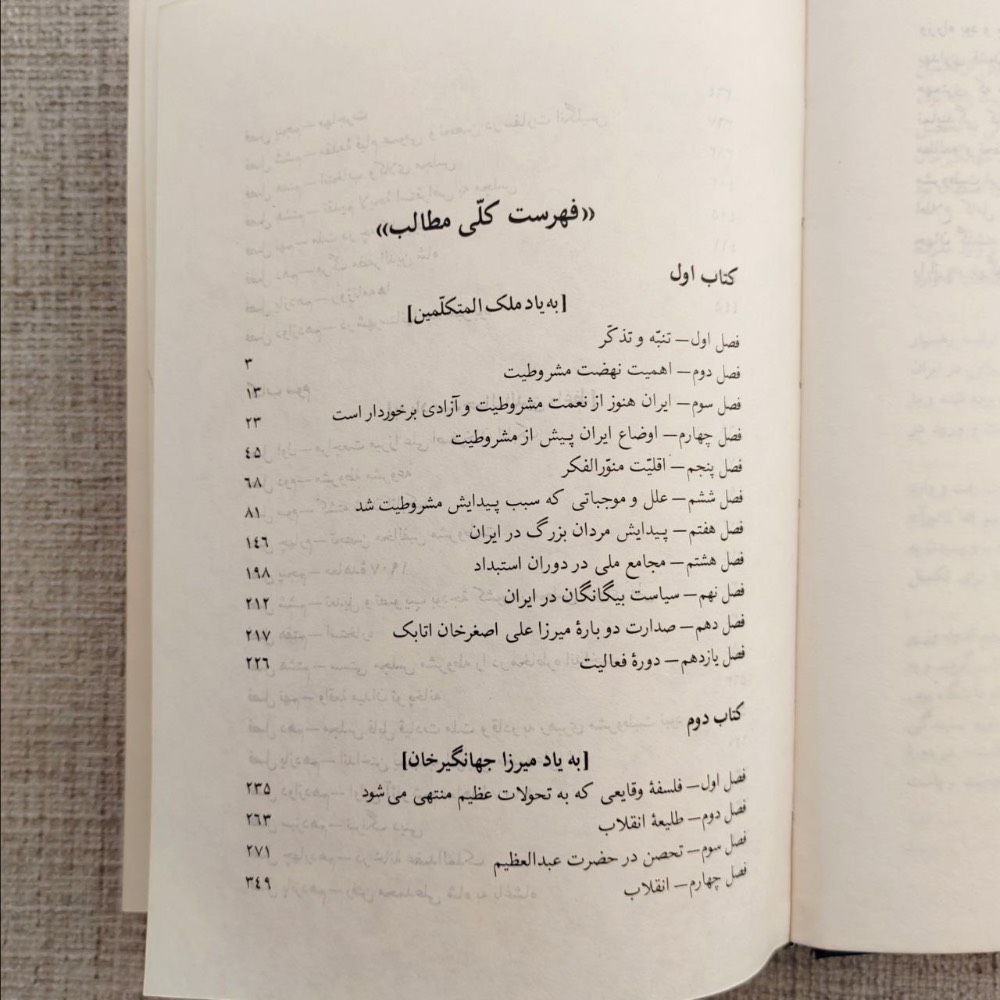 «فهرست کلّی مطالب»
کتاب اول
[به یاد ملک المتکلّمین]
فصل اول— تنبّه و تذکّر ۳
فصل دوم— اهمیت نهضت مشروطیت ۱۳
فصل سوم— ایران هنوز از نعمت مشروطیت و آزادی برخوردار است ۲۳
فصل چهارم— اوضاع ایران پیش از مشروطیت ۴۵
فصل پنجم— اقلیّت منوّرالفکر ۶۸
فصل ششم— علل و موجباتی که سبب پیدایش مشروطیت شد ۸۱
فصل هفتم— پیدایش مردان بزرگ در ایران ۱۴۶
فصل هشتم— مجامع ملی در دوران استبداد ۱۹۸
فصل نهم— سیاست بیگانگان در ایران ۲۱۲
فصل دهم— صدارت دوبارهٔ میرزا علی اصغرخان اتابک ۲۱۷
فصل یازدهم— دورهٔ فعالیت ۲۲۶
کتاب دوم
[به یاد میرزا جهانگیرخان]
فصل اول— فلسفهٔ وقایعی که به تحولات عظیم منتهی می‌شود ۲۳۵
فصل دوم— طلیعهٔ انقلاب ۲۶۳
فصل سوم— تحصن در حضرت عبدالعظیم ۲۷۱
فصل چهارم— انقلاب ۳۴۹